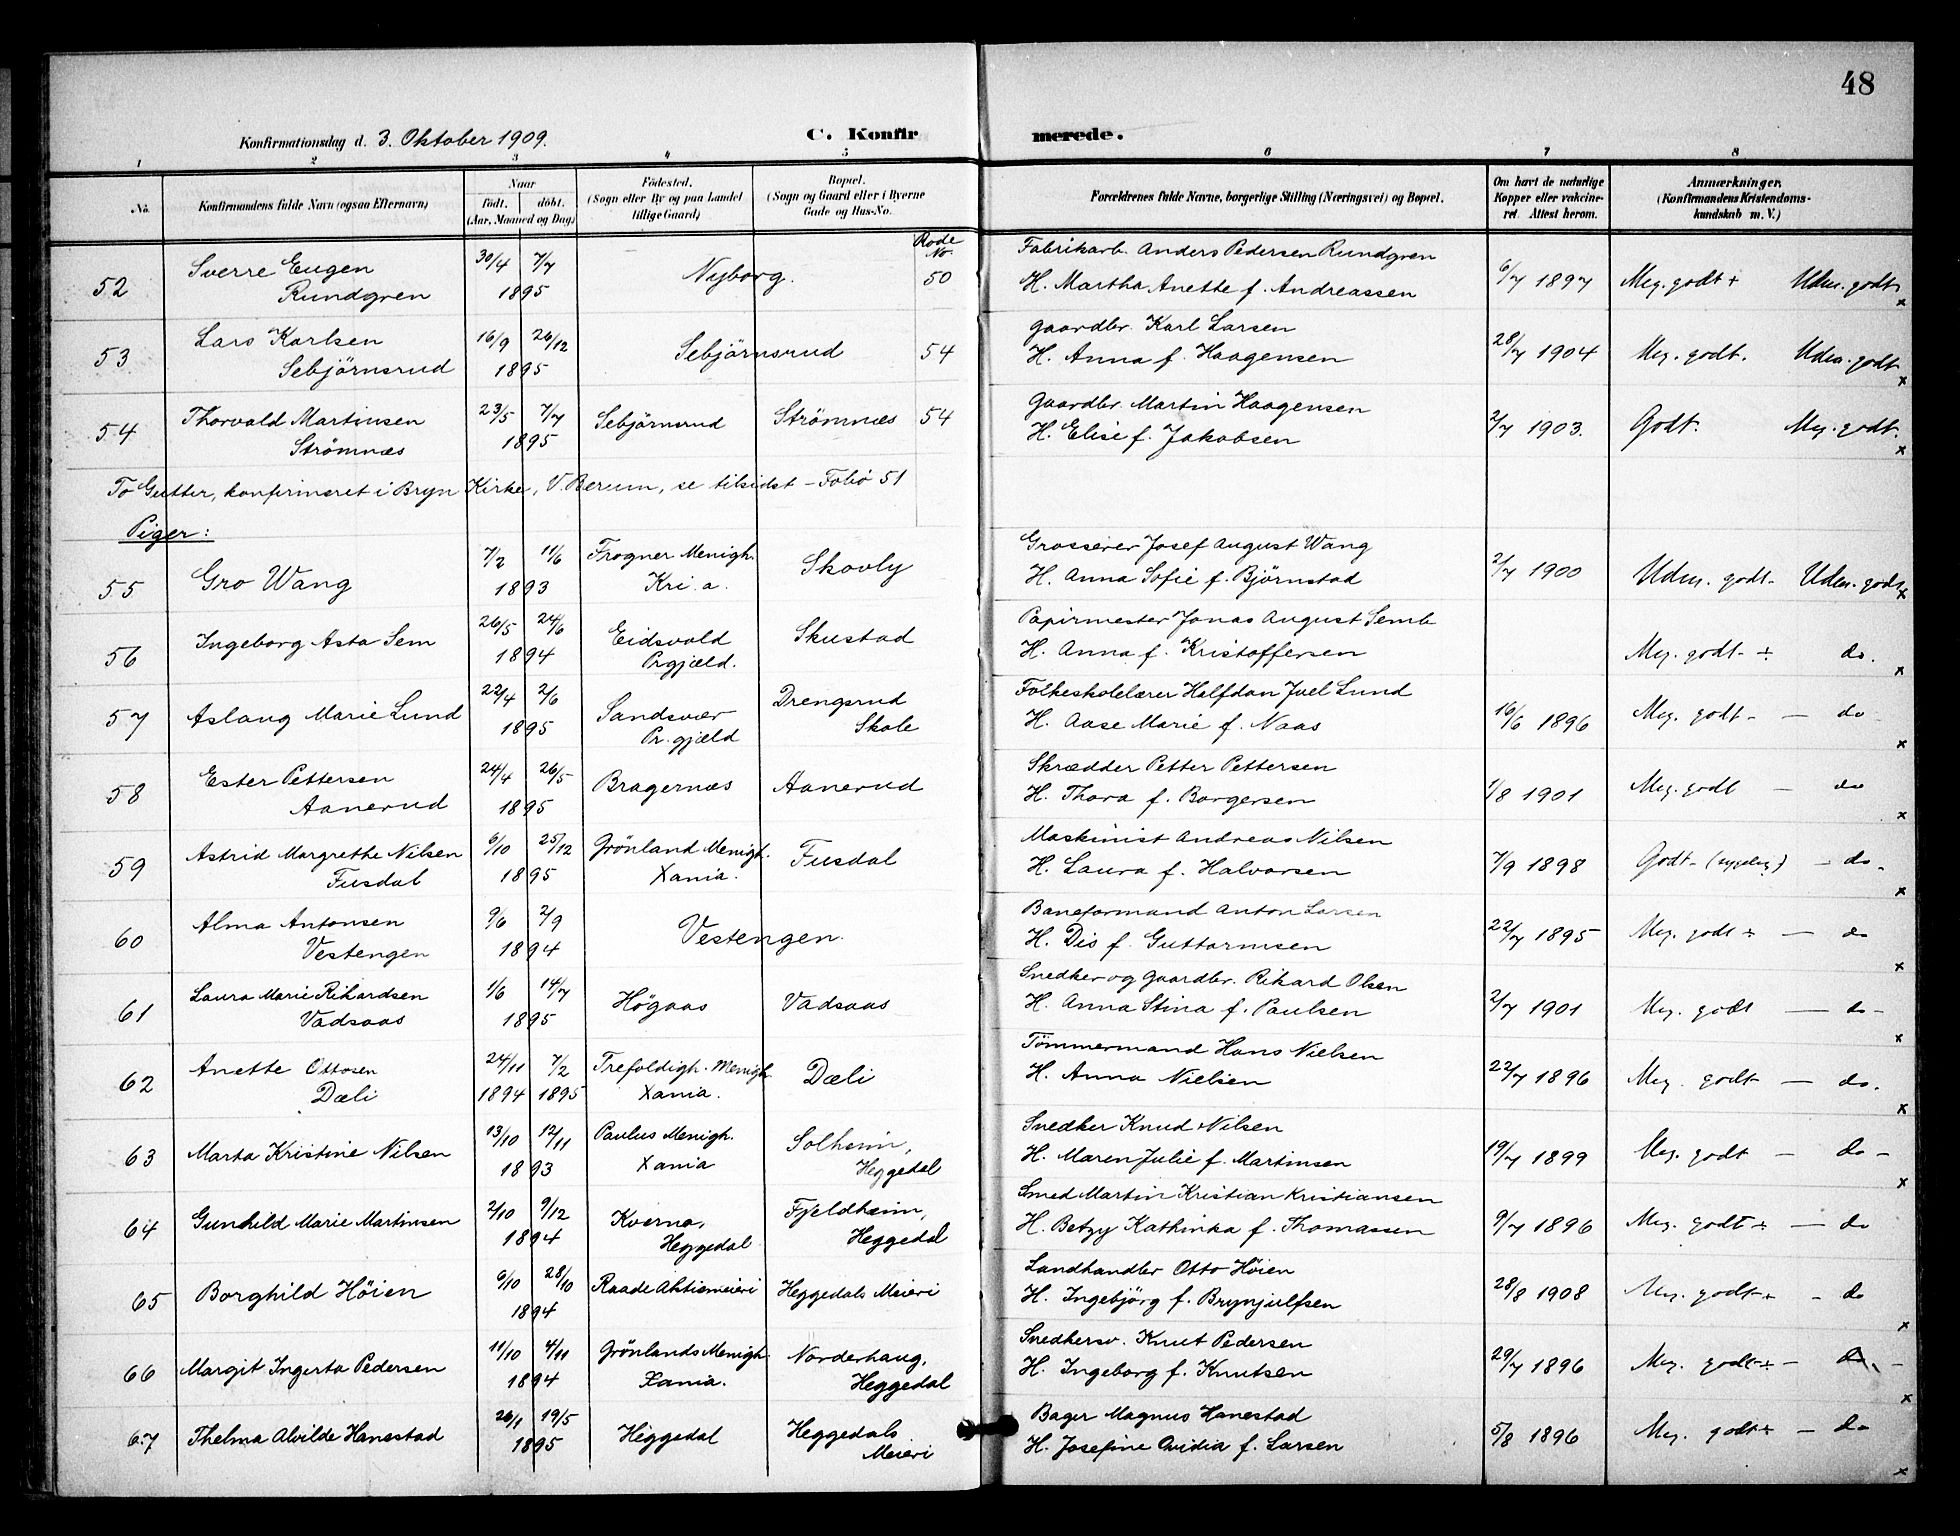 48
Konfirmationsdag d. 3. Oktober 1909.
C. Konfirmerede.
1 2 3 4 5 6 7 8
No. Konfirmandens fulde Navn (ogsaa Efternavn) Naar født. døbt. (Aar, Maaned og Dag) Fødested. (Sogn eller By og paa Landet tillige Gaard) Bopæl. (Sogn og Gaard eller i Byerne Gade og Hus-No. Forældrenes fulde Navne, borgerlige Stilling (Næringsvei) og Bopæl. Om havt de naturlige Kopper eller vakcineret. Attest herom. Anmærkninger. (Konfirmandens Kristendomskundskab m. V.)
Rode No.
52 Sverre Eugen Rundgren 30/4 7/7 1895 Nyborg. 50 Fabrikarb. Anders Pedersen Rundgren H. Martha Anette f. Andreassen 6/7 1897 Meg. godt + Udm. godt x
53 Lars Karlsen Sebjörnsrud 16/9 26/12 1895 Sebjörnsrud 54 Gaardbr. Karl Larsen H. Anna f. Haagensen 28/7 1904 Meg. godt. Udm. godt x
54 Thorvald Martinsen Strömnæs 23/5 7/7 1895 Sebjörnsrud Strömnæs 54 Gaardbr. Martin Haagensen H. Elise f. Jakobsen 2/7 1903. Godt. Meg. godt. x
To Gutter, konfirmeret i Bryn Kirke, V. Berum, se tilsidst - Folio 51
Piger:
55 Gro Wang 7/2 11/6 1893 Frogner Menigh. Kri.a. Skovly Grosserer Josef August Wang H. Anna Sofie f. Björnstad 2/7 1900 Udm. godt - Udm. godt x
56 Ingeborg Asta Sem 26/5 24/6 1894 Eidsvold Prgjæld. Skustad Papirmester Jonas August Semb H. Anna f. Kristoffersen Meg. godt - ÷ do. x
57 Aslaug Marie Lund 22/4 2/6 1895 Sandsvær Pr.gjæld Drengsrud Skole Folkeskolelærer Halfdan Juel Lund H. Aase Marie f. Naas 16/6 1896 Meg. godt - — do x
58 Ester Pettersen Aanerud 24/4 26/5 1895 Bragernæs Aanerud Skrædder Petter Pettersen H. Thora f. Borgersen 1/8 1901 Meg. godt — do x
59 Astrid Margrethe Nilsen Fusdal 6/10 25/12 1895 Grönland Menigh. Xania. Fusdal Maskinist Andreas Nilsen H. Laura f. Halvorsen 7/9 1898 Godt - — do - x
60 Alma Antonsen Vestengen 9/6 2/9 1894 Vestengen. Baneformand Anton Larsen H. Dis f. Guttormsen 22/7 1895 Meg. godt ÷ — do x
61 Laura Marie Rikardsen Vadsaas 1/6 14/7 1895 Högaas Vadsaas Snedker og Gaardbr. Rikard Olsen H. Anna Stina f. Paulsen 2/7 1901 Meg. godt — do - x
62 Anette Ottosen Dæli 24/11 1894 7/2 1895 Trefoldigh. Menigh. Xania. Dæli Tömmermand Hans Nielsen H. Anna Nielsen 22/7 1896 Meg. godt — do. x
63 Marta Kristine Nilsen 13/10 12/11 1893 Paulus Menigh. Xania Solheim, Heggedal Snedker Knud Nilsen H. Maren Julie f. Martinsen 19/7 1899 Meg. godt — do - x
64 Gunhild Marie Martinsen 2/10 9/12 1894 Kverna, Heggedal Fjeldheim, Heggedal Smed Martin Kristian Kristiansen H. Betzy Kathinka f. Thomassen 9/7 1896 Meg. godt ÷ — do
65 Borghild Höien 6/10 28/10 1894 Raade Aktiemeieri Heggedals Meieri Landhandler Otto Höien H. Ingebjörg f. Brynjulfsen 28/8 1908 Meg. godt + - do x
66 Margit Ingerta Pedersen 11/10 4/11 1894 Grönlands Menigh. Xania. Norderhaug, Heggedal Snedkersv. Knut Pedersen H. Ingeborg f. Knutsen 29/7 1896 Meg. godt ÷ - do - x
67 Thelma Alvilde Hanestad 26/1 19/5 1895 Heggedal Heggedals Meieri Bager Magnus Hanestad H. Josefine Ovidia f. Larsen 5/8 1896 Meg. godt + — do x